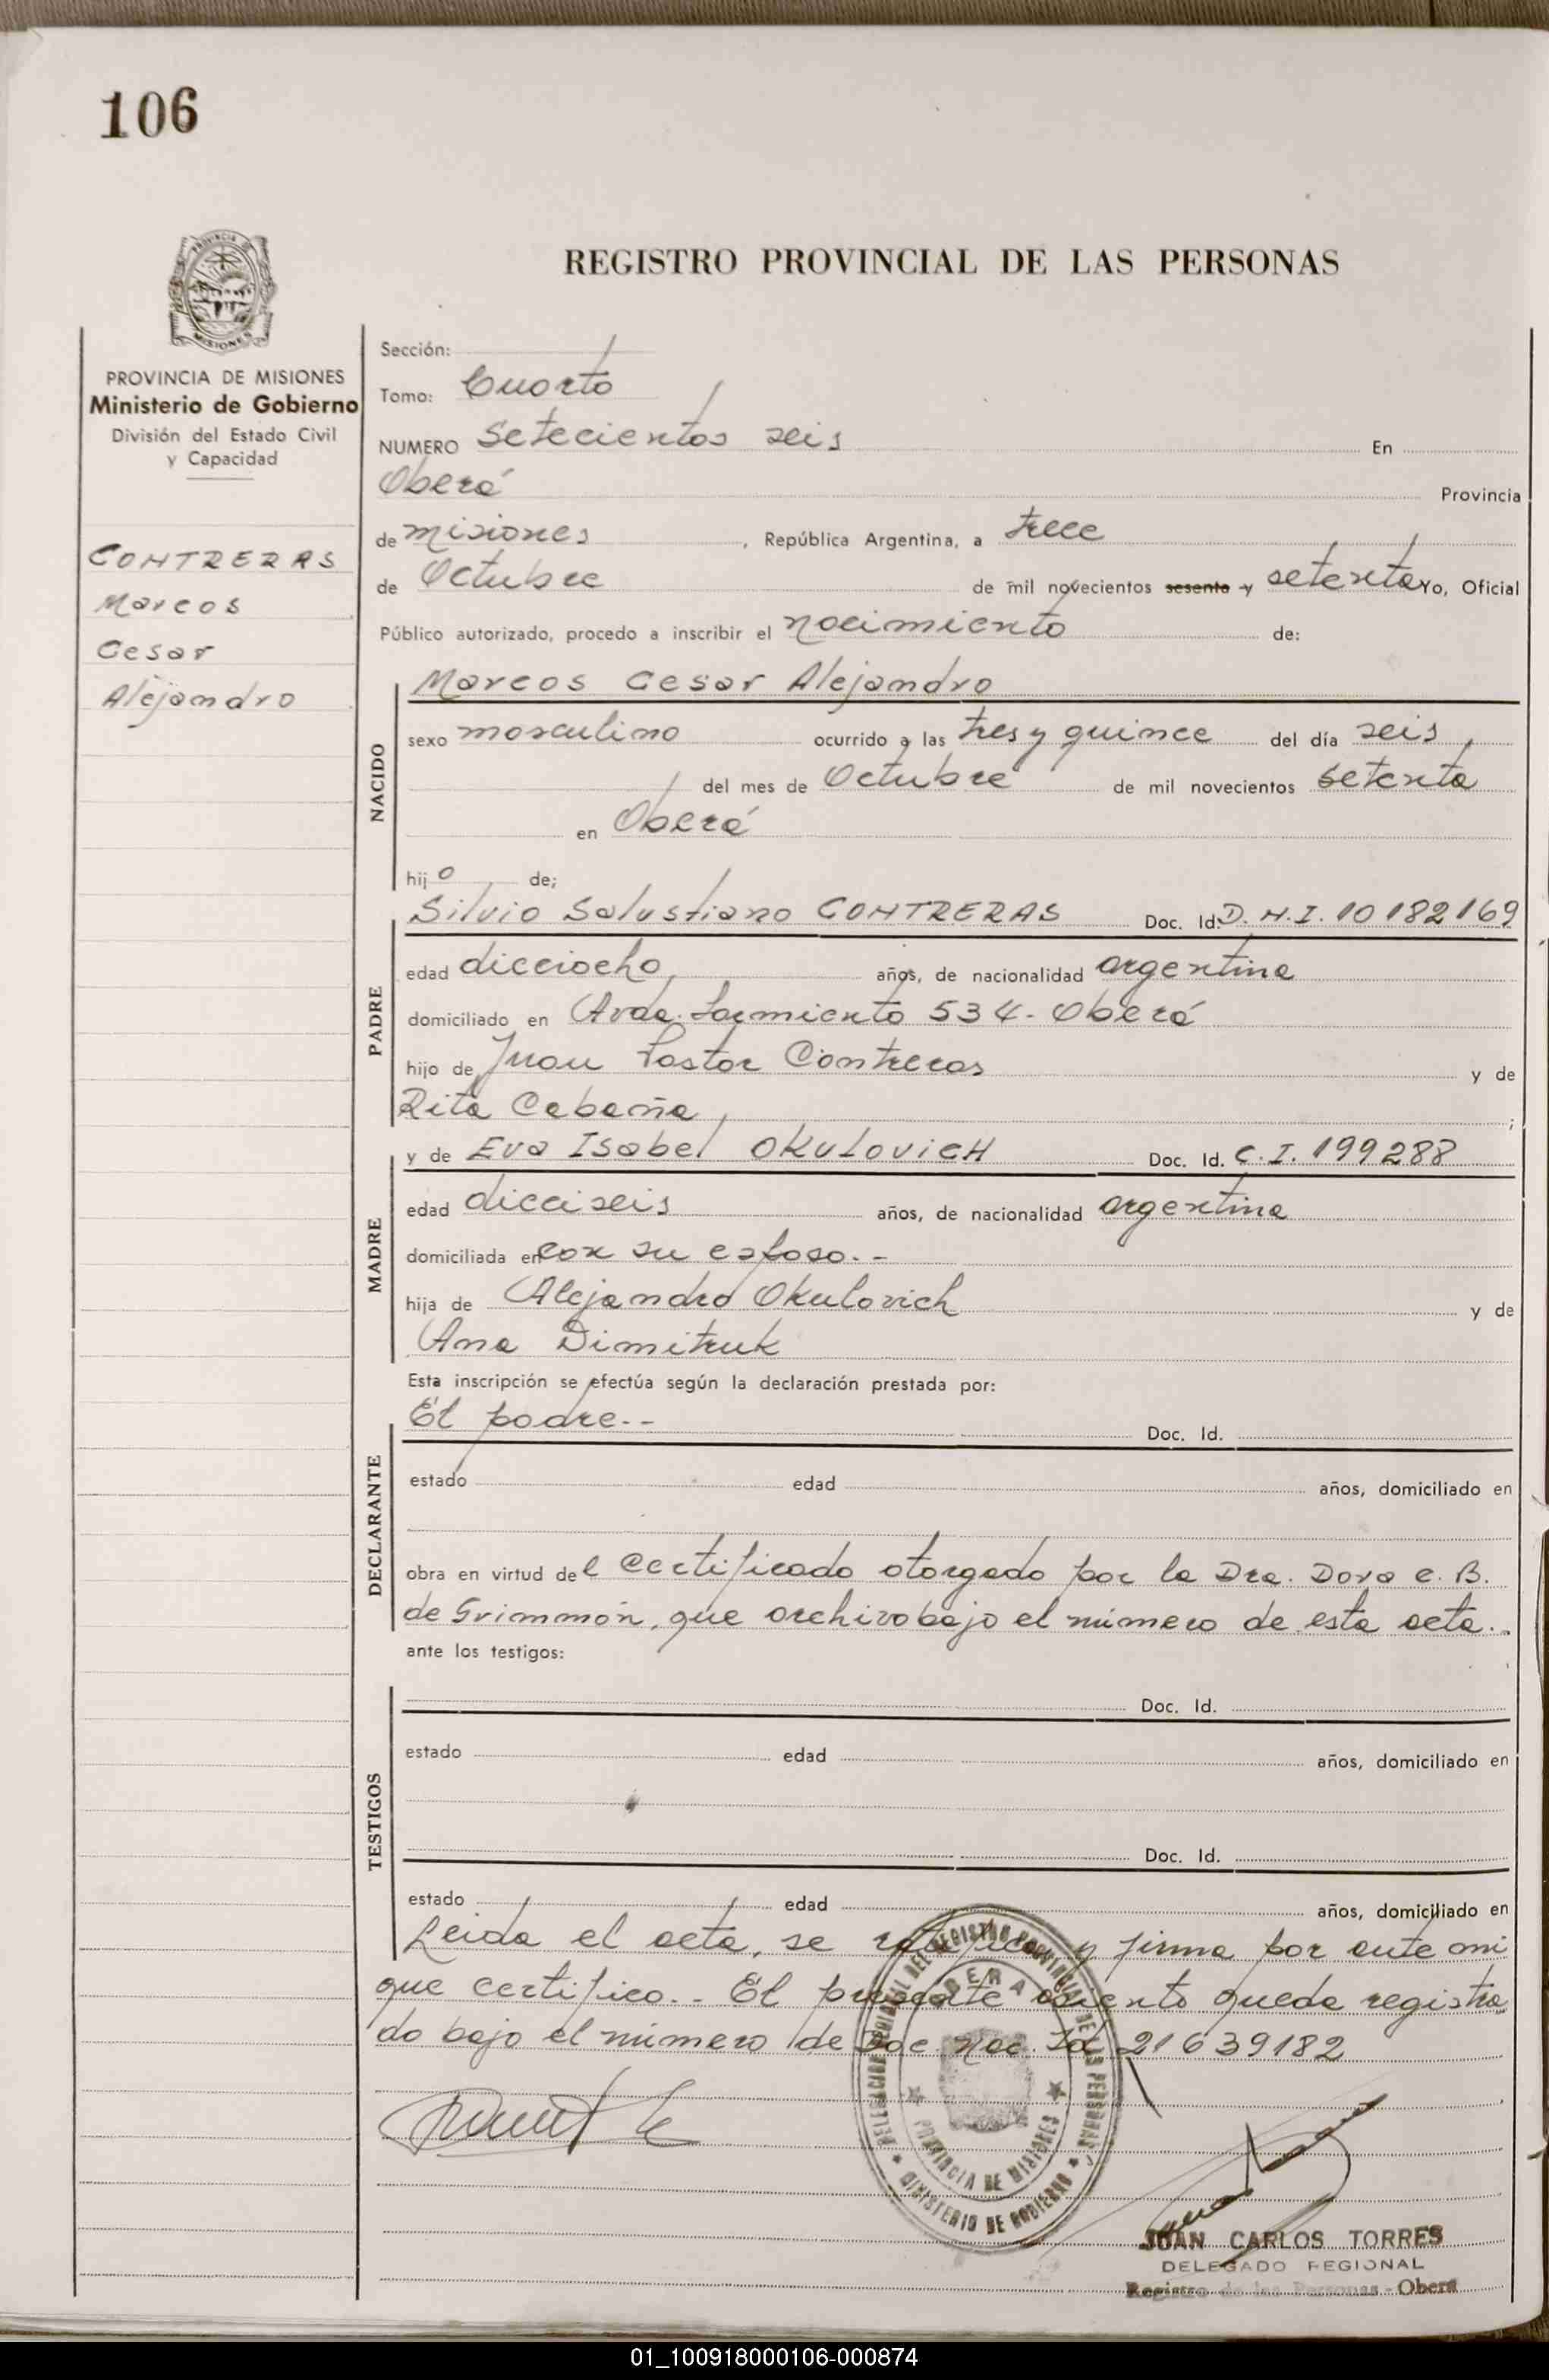 106
REGISTRO PROVINCIAL DE LAS PERSONAS
PROVINCIA DE MISIONES
Ministerio de Gobierno
División del Estado Civil
y Capacidad
CONTRERAS
Marcos
Cesar
Alejandro
Sección:
Tomo: Cuarto
NUMERO Setecientos seis En
Oberá Provincia
de misiones, República Argentina, a trece
de Octubre de mil novecientos sesenta y setenta Yo, Oficial
Público autorizado, procedo a inscribir el nacimiento de:
NACIDO
Marcos Cesar Alejandro
sexo masculino ocurrido a las tres y quince del día seis
del mes de Octubre de mil novecientos setenta
en Oberá
hijo de;
PADRE
Silvio Salustiano CONTRERAS Doc. Id. D.N.I. 10182169
edad dieciocho años, de nacionalidad argentina
domiciliado en Avda. Sarmiento 534- Oberá
hijo de Juan Pastor Contreras y de
Rita Cabaña ;
MADRE
y de Eva Isabel OKULOVICH Doc. Id. C.I. 199288
edad dieciseis años, de nacionalidad argentina
domiciliada en con su esposo.-
hija de Alejandro Okulovich y de
Ana Dimitruk
Esta inscripción se efectúa según la declaración prestada por:
DECLARANTE
El padre.-- Doc. Id.
estado edad años, domiciliado en
obra en virtud del Certificado otorgado por la Dra. Dora e. B.
de Grimmón, que archivo bajo el número de esta acta.
ante los testigos:
TESTIGOS
Doc. Id.
estado edad años, domiciliado en
Doc. Id.
estado edad años, domiciliado en
Leida el acta, se ratifica y firma por ante mi
que certifico.- El presente asiento queda registra
do bajo el número de Doc. Nac. Id 21639182
OBERA
PROVINCIA DE MISIONES
MINISTERIO DE GOBIERNO
JUAN CARLOS TORRES
DELEGADO REGIONAL
Registro de las Personas - Oberá
01_100918000106-000874